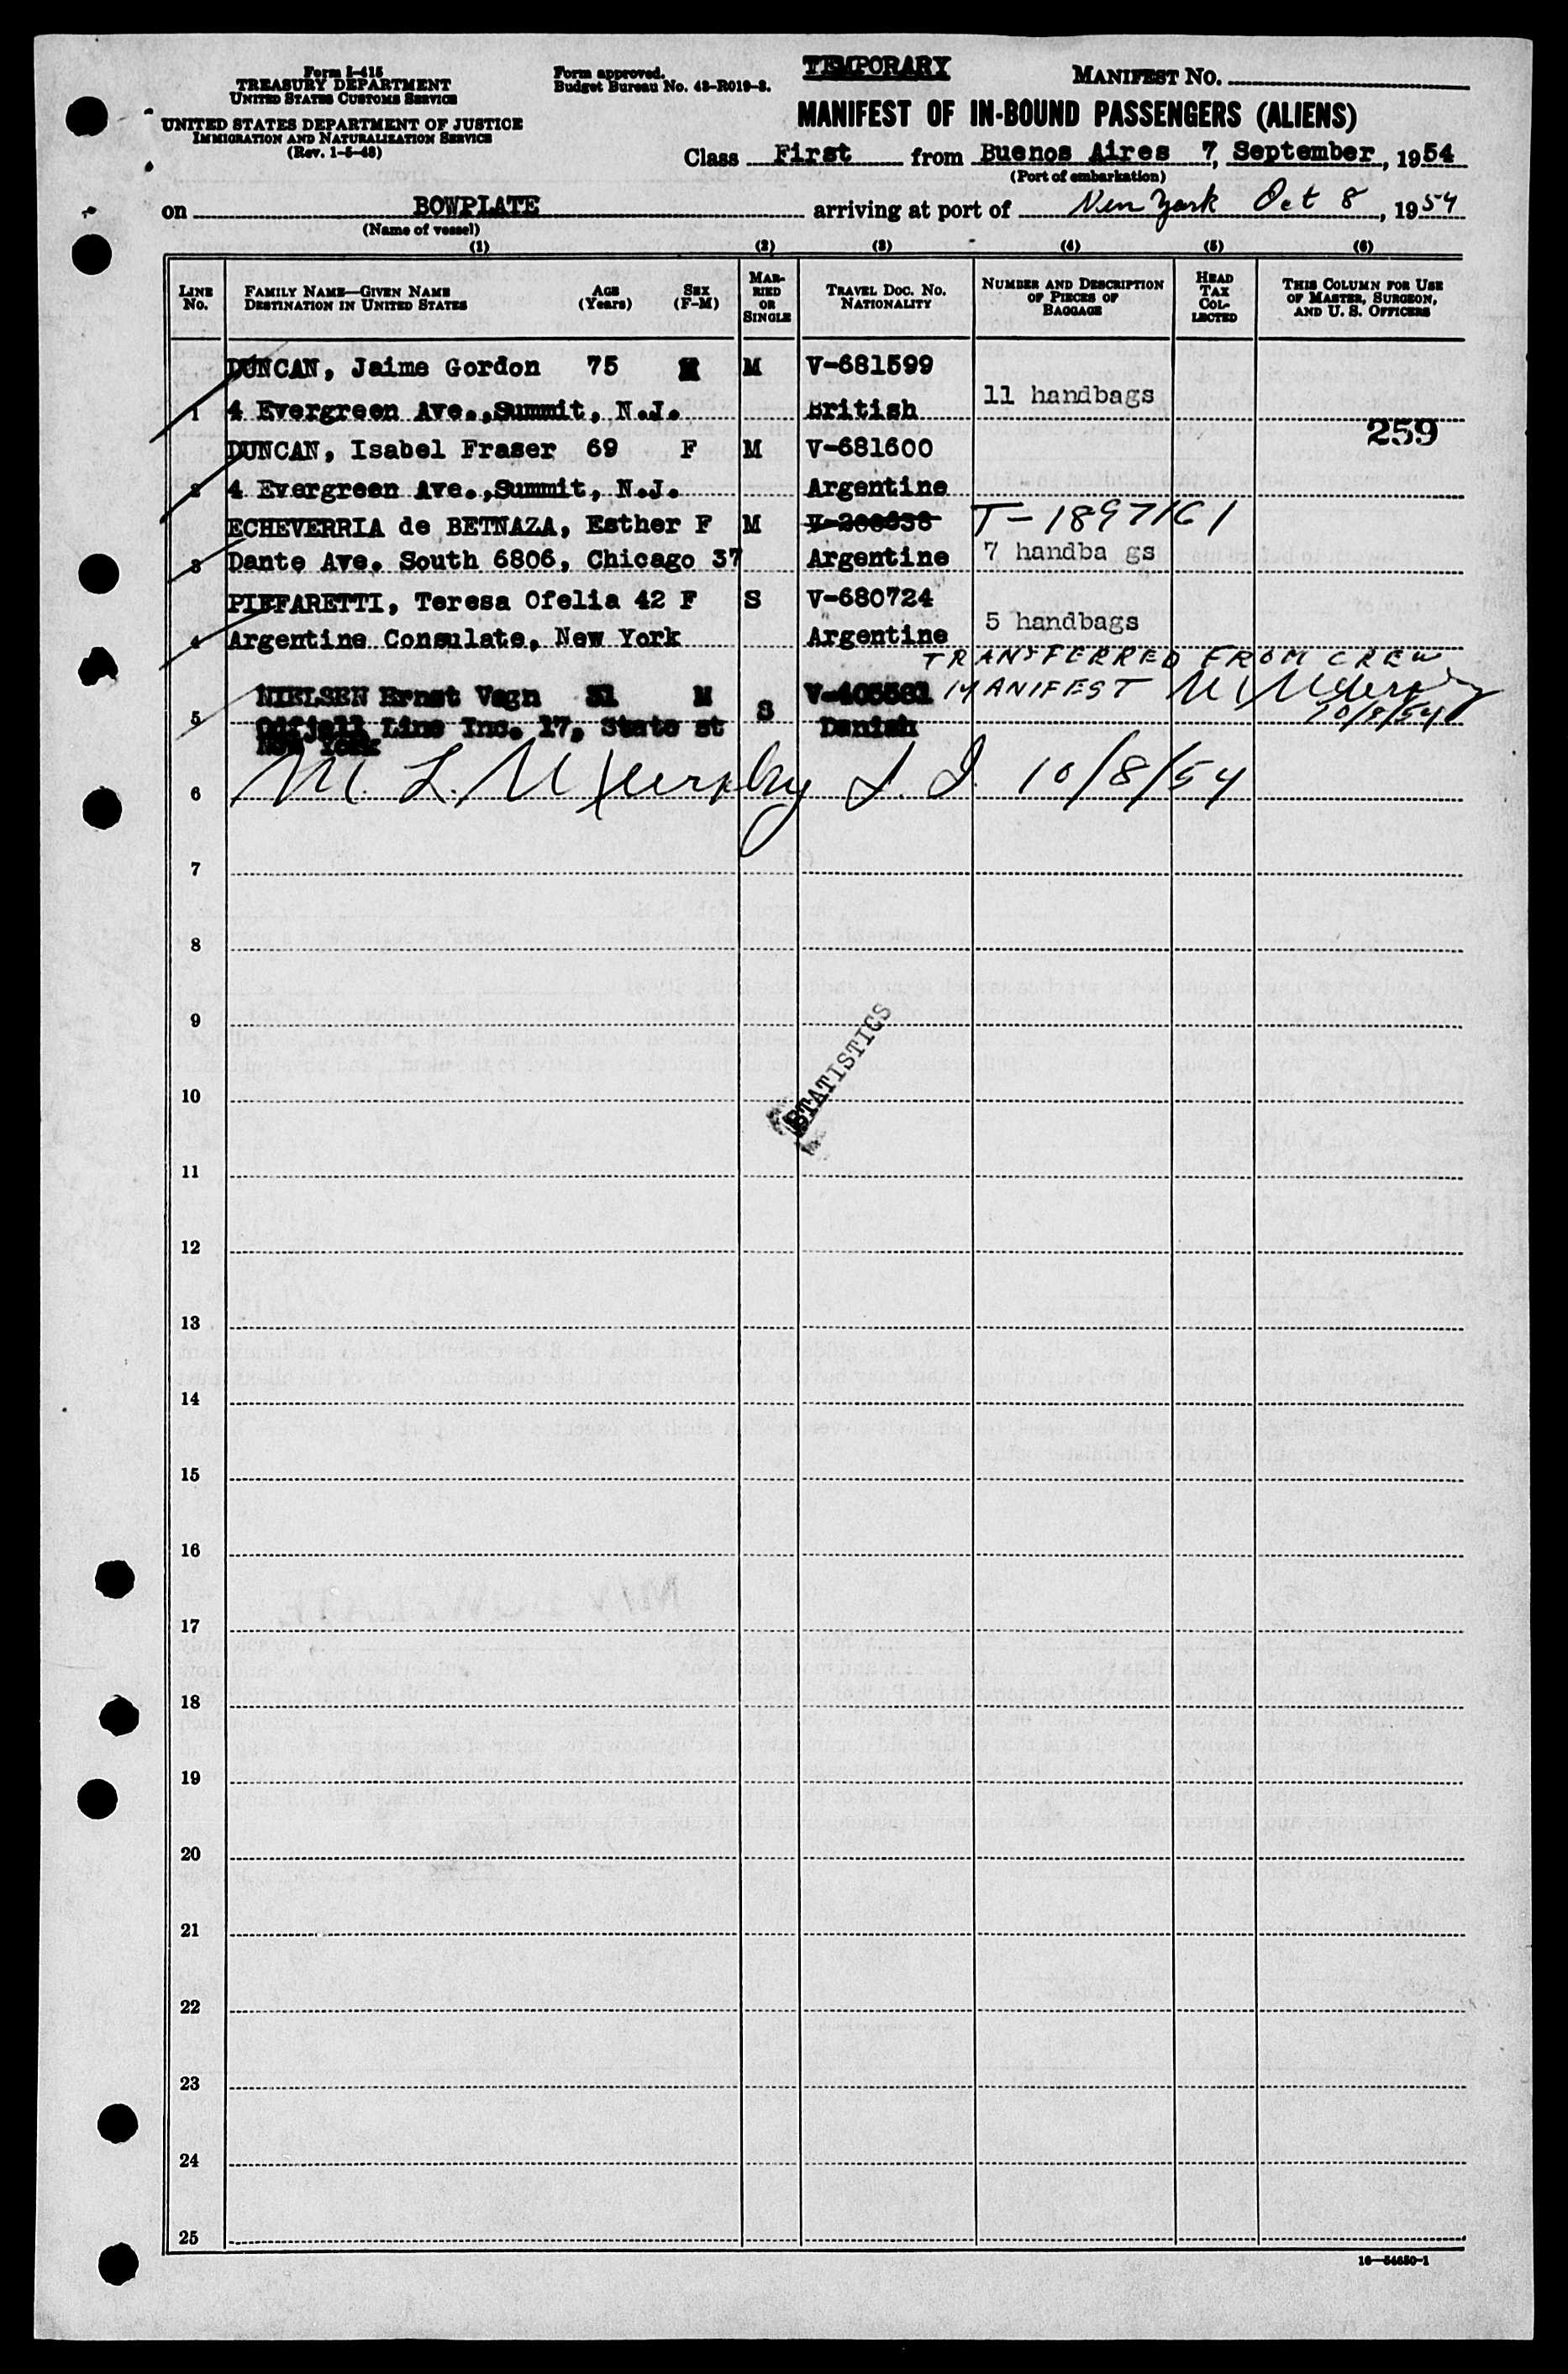 Form I-415
TREASURY DEPARTMENT
UNITED STATES CUSTOMS SERVICE
UNITED STATES DEPARTMENT OF JUSTICE
IMMIGRATION AND NATURALIZATION SERVICE
(Rev. 1-5-48)
Form approved.
Budget Bureau No. 43-R019-3.
TEMPORARY
MANIFEST NO.
MANIFEST OF IN-BOUND PASSENGERS (ALIENS)
Class First from Buenos Aires 7, September, 1954
(Port of embarkation)
on BOWPLATE arriving at port of New York Oct 8, 1954
(Name of vessel)
(1) (2) (3) (4) (5) (6)
LINE NO. FAMILY NAME—GIVEN NAME DESTINATION IN UNITED STATES AGE (Years) SEX (F-M) MARRIED OR SINGLE TRAVEL DOC. NO. NATIONALITY NUMBER AND DESCRIPTION OF PIECES OF BAGGAGE HEAD TAX COLLECTED THIS COLUMN FOR USE OF MASTER, SURGEON, AND U. S. OFFICERS
DUNCAN, Jaime Gordon 75 M M V-681599
11 handbags
1 4 Evergreen Ave.,Summit, N.J. British
259
DUNCAN, Isabel Fraser 69 F M V-681600
2 4 Evergreen Ave.,Summit, N.J. Argentine
ECHEVERRIA de BETNAZA, Esther F M T-1897161
3 Dante Ave. South 6806, Chicago 37 Argentine 7 handba gs
PIEFARETTI, Teresa Ofelia 42 F S V-680724
5 handbags
4 Argentine Consulate, New York Argentine
TRANSFERRED FROM CREW
NIELSEN Ernst Vagn 31 M S MANIFEST
10/8/54
5 Odfjell Line Inc. 17, State st Danish
New York
6 M. L. Murphy I. I. 10/8/54
7
8
9
STATISTICS
10
11
12
13
14
15
16
17
18
19
20
21
22
23
24
25
16—54650-1